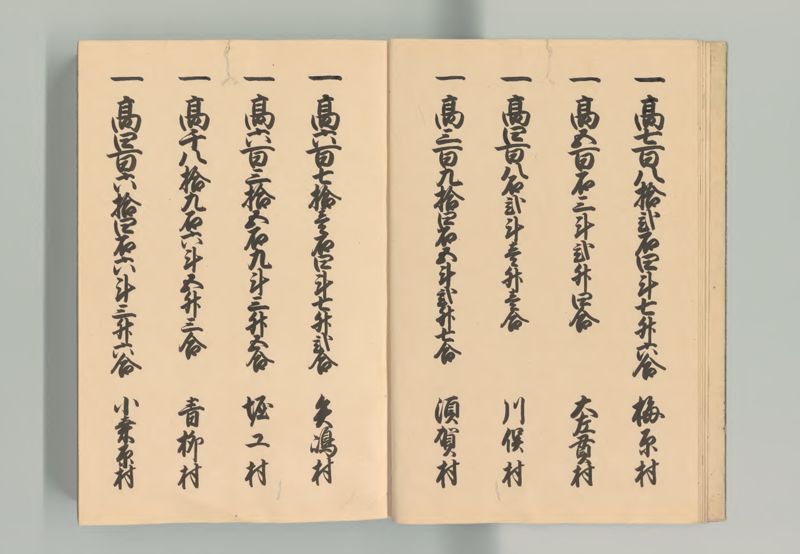 一高七百八拾弐石四斗七升六合 梅原村
一高五百石三斗弐升四合 大左貫村
一高四百八石弐斗壱升壱合 川俣村
一高三百九拾四石五斗弐升七合 須賀村
一高六百七拾壱石四斗七升弐合 矢嶋村
一高六百三拾五石九斗三升五合 堀工村
一高千八拾九石六斗五升三合 青柳村
一高四百六拾四石六斗三升六合 小桑原村